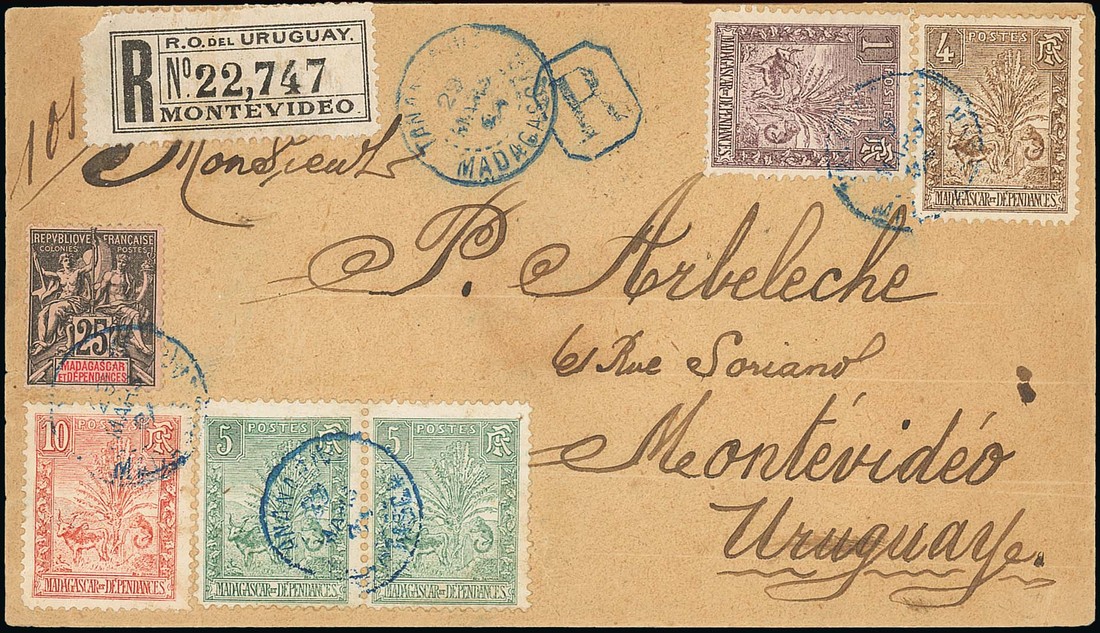 R
R.O. DEL URUGUAY.
No. 22,747
MONTEVIDEO
MADAGASCAR
R
1
POSTES
RF
MADAGASCAR ET DÉPENDANCES
4
POSTES
RF
MADAGASCAR ET DÉPENDANCES
Monsieur
P. Arbeleche
61 Rue Soriano
Montévidéo
Uruguay.
REPVBLIQVE FRANÇAISE
COLONIES POSTES
25
MADAGASCAR
ET DÉPENDANCES
10
POSTES
RF
MADAGASCAR ET DÉPENDANCES
5
POSTES
RF
MADAGASCAR ET DÉPENDANCES
5
POSTES
RF
MADAGASCAR ET DÉPENDANCES
TANANARIVE